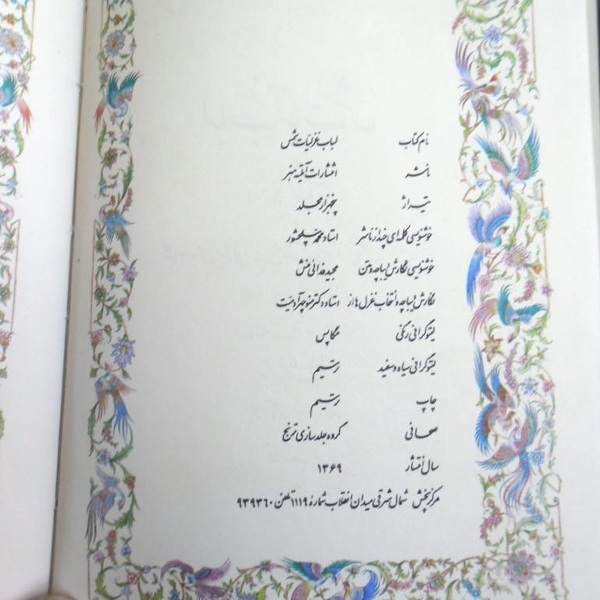 نام کتاب لباب غزلیات شمس
ناشر انتشارات آتلیه هنر
تیراژ پنجهزار مجلد
خوشنویسی کلمه‌ای چند از ناشر استاد محمد سلحشور
خوشنویسی نگارش دیباچه و متن مجید فدائی منش
نگارش دیباچه و انتخاب غزل ها از استاد دکتر منوچهر آدمیت
لیتوگرافی رنگی مگاپس
لیتوگرافی سیاه و سفید رستیم
چاپ رستیم
صحافی گروه جلدسازی ترنج
سال انتشار ۱۳۶۹
مرکز پخش شمال شرقی میدان انقلاب شماره ۱۱۱۹ تلفن ۹۳۹۳۶۰